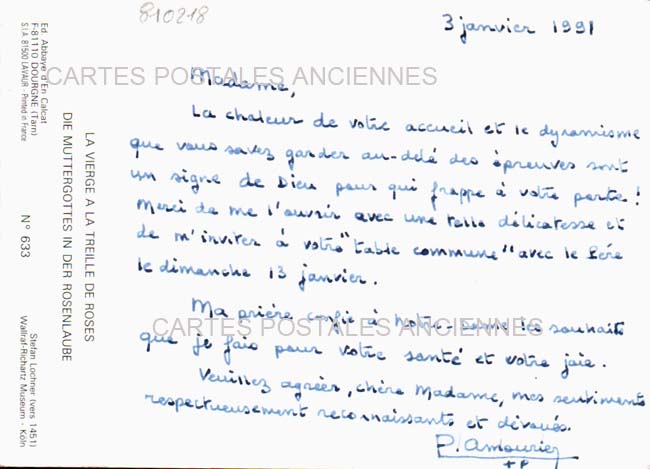 810218
3 janvier 1991
Madame,
La chaleur de votre accueil et le dynamisme
que vous savez garder au-delà des épreuves sont
un signe de Dieu pour qui frappe à votre porte !
Merci de me l'ouvrir avec une telle délicatesse et
de m'inviter à votre "table commune" avec le Père
le dimanche 13 janvier.
Ma prière confie à Notre-Dame les souhaits
que je fais pour votre santé et votre joie.
Veuillez agréer, chère Madame, mes sentiments
respectueusement reconnaissants et dévoués.
P. Amouriez
CARTES POSTALES ANCIENNES
CARTES POSTALES ANCIENNES
Ed. Abbaye d'En Calcat
F-81110 DOURGNE (Tarn)
S.I.A. 81500 LAVAUR - Printed in France
LA VIERGE A LA TREILLE DE ROSES
DIE MUTTERGOTTES IN DER ROSENLAUBE
N° 633
Stefan Lochner (vers 1451)
Wallraf-Richartz Museum - Köln